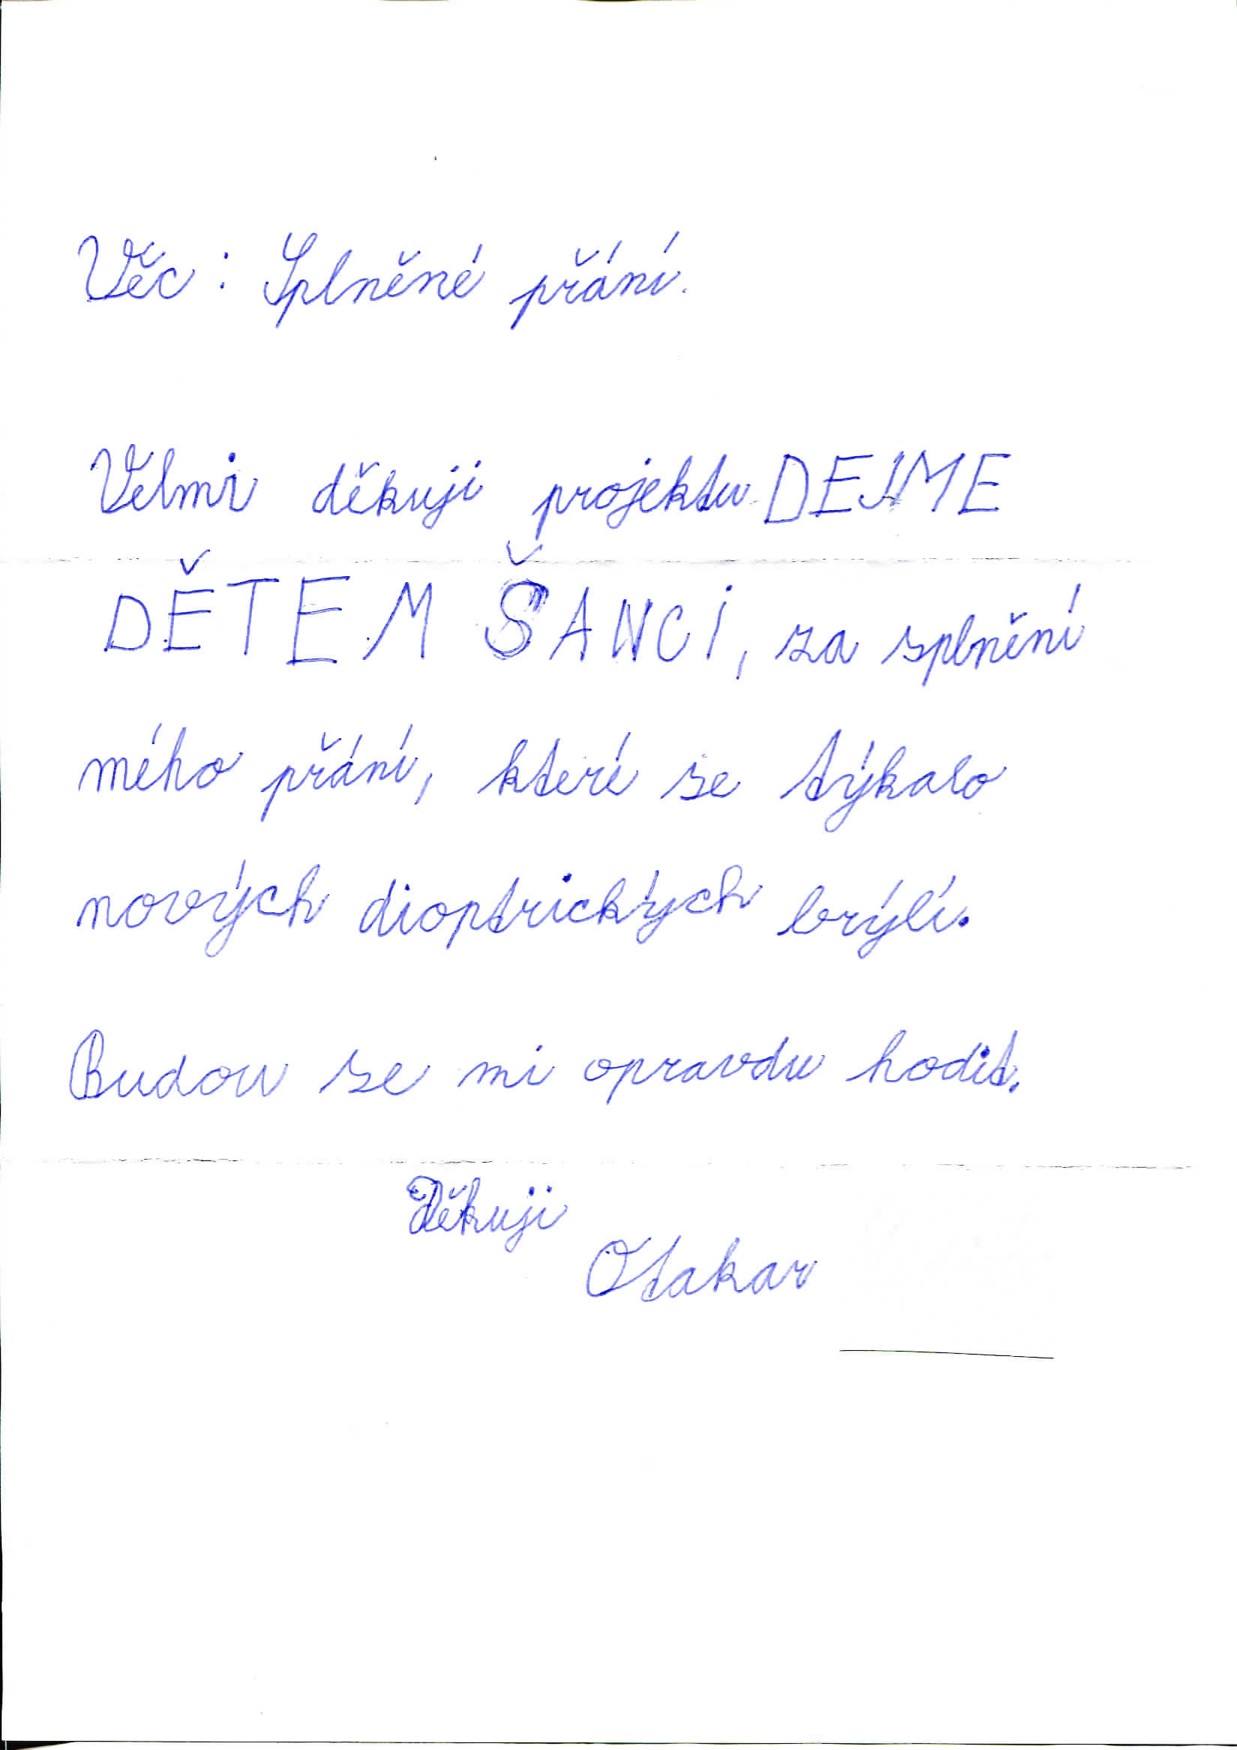 Věc: Splněné přání.
Velmi děkuji projektu DEJME
DĚTEM ŠANCI, za splnění
mého přání, které se týkalo
nových dioptrických brýlí.
Budou se mi opravdu hodit.
Děkuji
Otakar